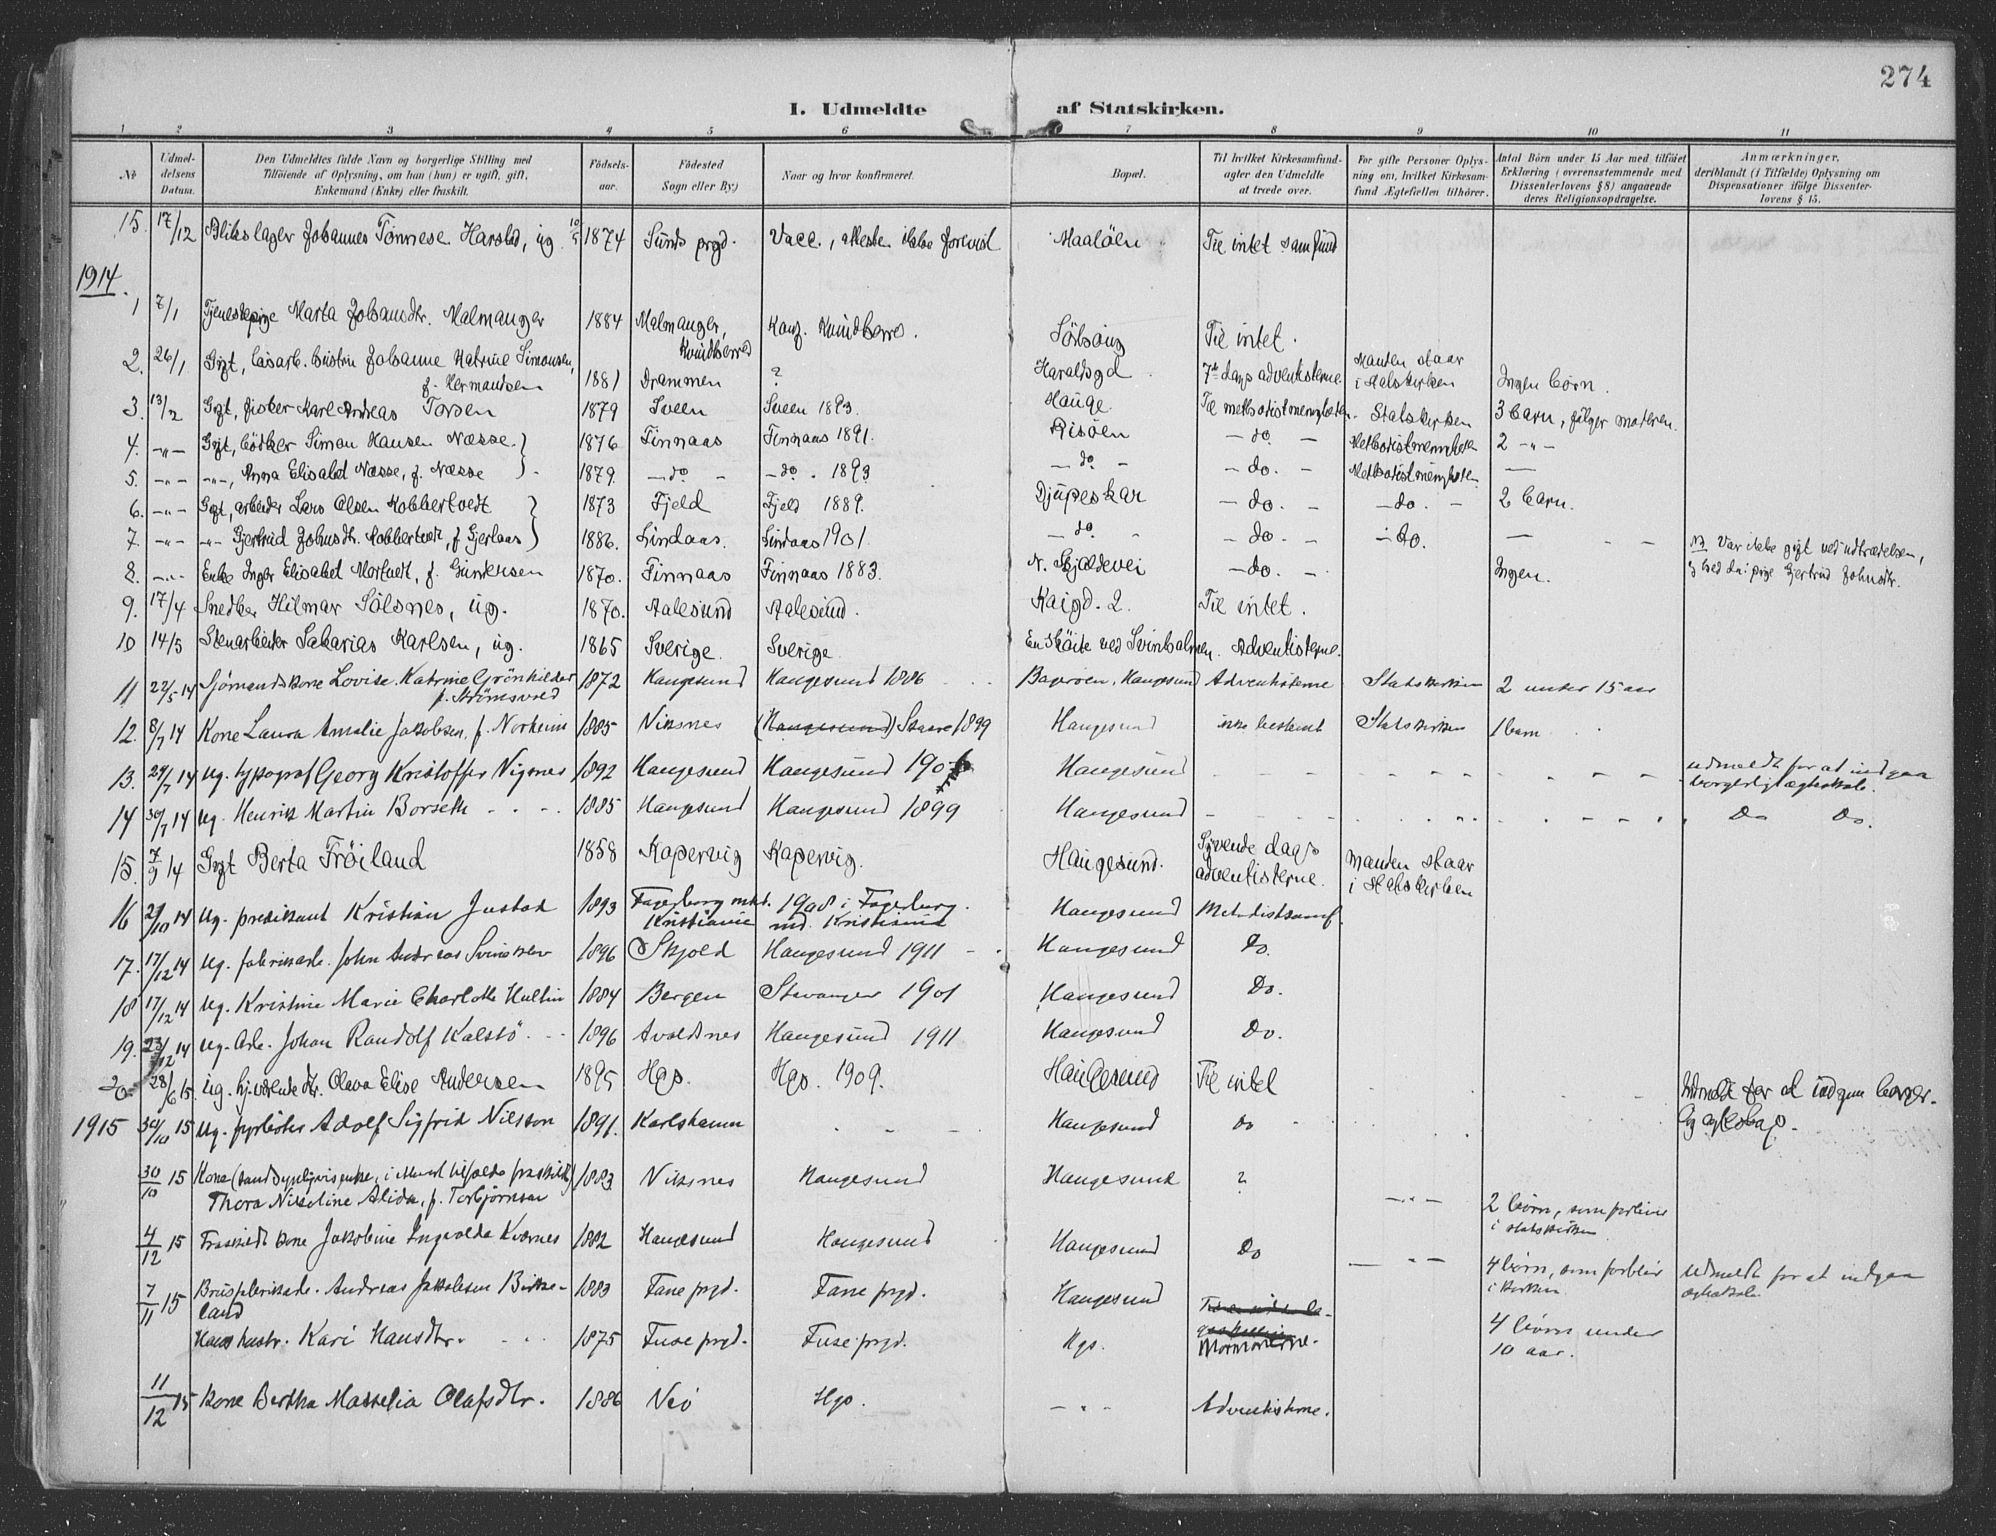 274
I. Udmeldte af Statskirken.
1 2 3 4 5 6 7 8 9 10 11
No.
Udmeldelsens Datum.
Den Udmeldtes fulde Navn og borgerlige Stilling med
Tilføiende af Oplysning, om han (hun) er ugift, gift,
Enkemand (Enke) eller fraskilt.
Fødselsaar.
Fødested
Sogn eller By.)
Naar og hvor konfirmeret.
Bopæl.
Til hvilket Kirkesamfund-
agter den Udmeldte
at træde over.
For gifte Personer Oplys-
ning om, hvilket Kirkesam-
fund Ægtefællen tilhører.
Antal Børn under 15 Aar med tilføiet
Erklæring (overensstemmende med
Dissenterlovens § 8) angaaende
deres Religionsopdragelse.
Anmærkninger,
deriblandt (i Tilfælde) Oplysning om
Dispensationer ifølge Dissenter-
lovens § 15.
15. 17/12 Blikslager Johannes Tønnese Harstad, ug. 1874 Sunds prgd. Vacc., attester ikke forevist Maaløen Til intet samfund
1914
1 7/1 Tjenestepige Marta Johansdtr. Malmanger 1884 Malmanger, Kvindherred Konf. Kvindherred. Til intet.
2. 26/1 Gift, løsarb. hustru Johanne Katrine Simonsen, f. Hermansen 1881 Drammen ? Haraldsgd 7de dags adventisterne Manden staar i statskirken Ingen børn.
3. 13/2 Gift, fisker Karl Andreas Torsen 1879 Sveen Sveen 1893. Hauge Til methodistmenigheten. Statskirken 3 barn, følger moderen.
4. -"- Gift, bødker Simon Hansen Næsse. 1876 Finnaas Finnaas 1891. Risøen - do. - Methodistmenigheten 2 -"-
5. -"- -"-, Anna Elisabet Næsse, f. Næsse 1879. - do - - do. 1893 - do - - do. - Methodistmenigheten —
6. -"- Gift, arbeider Lars Olsen Kobbertvedt 1873 Fjeld Fjeld 1889. Djupeskar - do. - - do. - 2 barn.
7. -"- -"- Gjertrud Johnsdtr. Kobbertvedt, f. Gjerlaas 1886. Lindaas. Lindaas 1901. - do - - do. - - do. — NB Var ikke gift ved udtrædelsen,
8. -"- Enke Inger Elisabet Mortvedt, f. Gundersen 1870. Finnaas Finnaas 1883. N. Skjoldevei - do. - Ingen. pige Gjertrud Johnsdtr.
9. 17/4 Snedker Hilmar Solsnes, ug. 1870. Aalesund Aalesund. Kaigd. 2. Til intet.
10 14/5 Stenarbeider Sakarias Karlsen, ug. 1865 Sverige. Sverige. En skøite ved Svinholmen. Adventisterne.
11 22/5 14 Sjømandskone Lovise Katrine Grønhilder f. Strømsvold 1872 Haugesund Haugesund 1886 Bagerøen, Haugesund Adventisterne Statskirken 2 under 15 aar
12. 8/7 14 Kone Laura Amalie Jakobsen, f. Norheim 1885 Viksnes (Haugesund) Skaare 1899 Haugesund ikke bestemt Statskirken 1 barn
13. 24/7 14 Ug. typograf Georg Kristoffer Vignes 1892 Haugesund Haugesund 1906 Haugesund udmeldt for at indgaa borgerlig ægteskab.
14 30/7 14 Ug. Henrik Martin Borseth 1885 Haugesund Haugesund 1899 Haugesund Do Do.
15. 7/9 14 Gift Berta Frøiland 1858 Kopervig Kopervig. Haugesund. Syvende dags adventisterne. Manden staar i Statskirken
16 21/10 14 Ug. predikant Kristian Justad 1893 Fagerborg mht. Kristiania 1908 i Fagerborg. mht. Kristiania Haugesund Metodistsamf.
17. 17/12 14 Ug. fabrikarb. John Andreas 1896 Skjold Haugesund 1911 Haugesund Do.
18 17/12 14 Ug. Kristine Marie Charlotte Hultin 1884 Bergen Stavanger 1901 Haugesund Do.
19. 23/12 14 Ug. Arb. Johan Randolf Kalstø 1896 Avaldsnes Haugesund 1911 Haugesund Do.
20 28/6 15. ug. hj.værende dtr. Olava Elise Andersen 1895 Hgs. Hgs. 1909. Haugesund Til intet Udmeldt for at indgaa borger-
1915 30/10 15 Ug. fyrbøter Adolf Sigfrid Nilsson 1891. Karlshamn Haugesund do lig ægteskap.
30/10 15 Kone (sandsynligvis enke, i modsat tilfælde fraskilt) Thora Nikoline Alida, f. Torbjørnsen 1883 Viksnes Haugesund Haugesund ? -"- 2 børn, som forbliver i statskirken
4/12 15 Fraskilt kone Jakobine Ingvalda Kvernes 1882 Haugesund Haugesund Haugesund Do -"- 4 børn, som forblir i kirken. Udmeldt for at indgaa ægteskab.
7/11 15 Brusfabrikarb. Andreas Jakobsen Birke-land 1883 Fane prgd. Fane prgd. Haugesund
Hans hustr. Kari Hansdtr. 1875 Fuse prgd. Fuse prgd. Hgs. Mormonerne. 4 børn under 10 aar.
11/12 15 Kone Bertha Masselia Olafsdtr. 1886 Hgs. -"- Adventisterne.